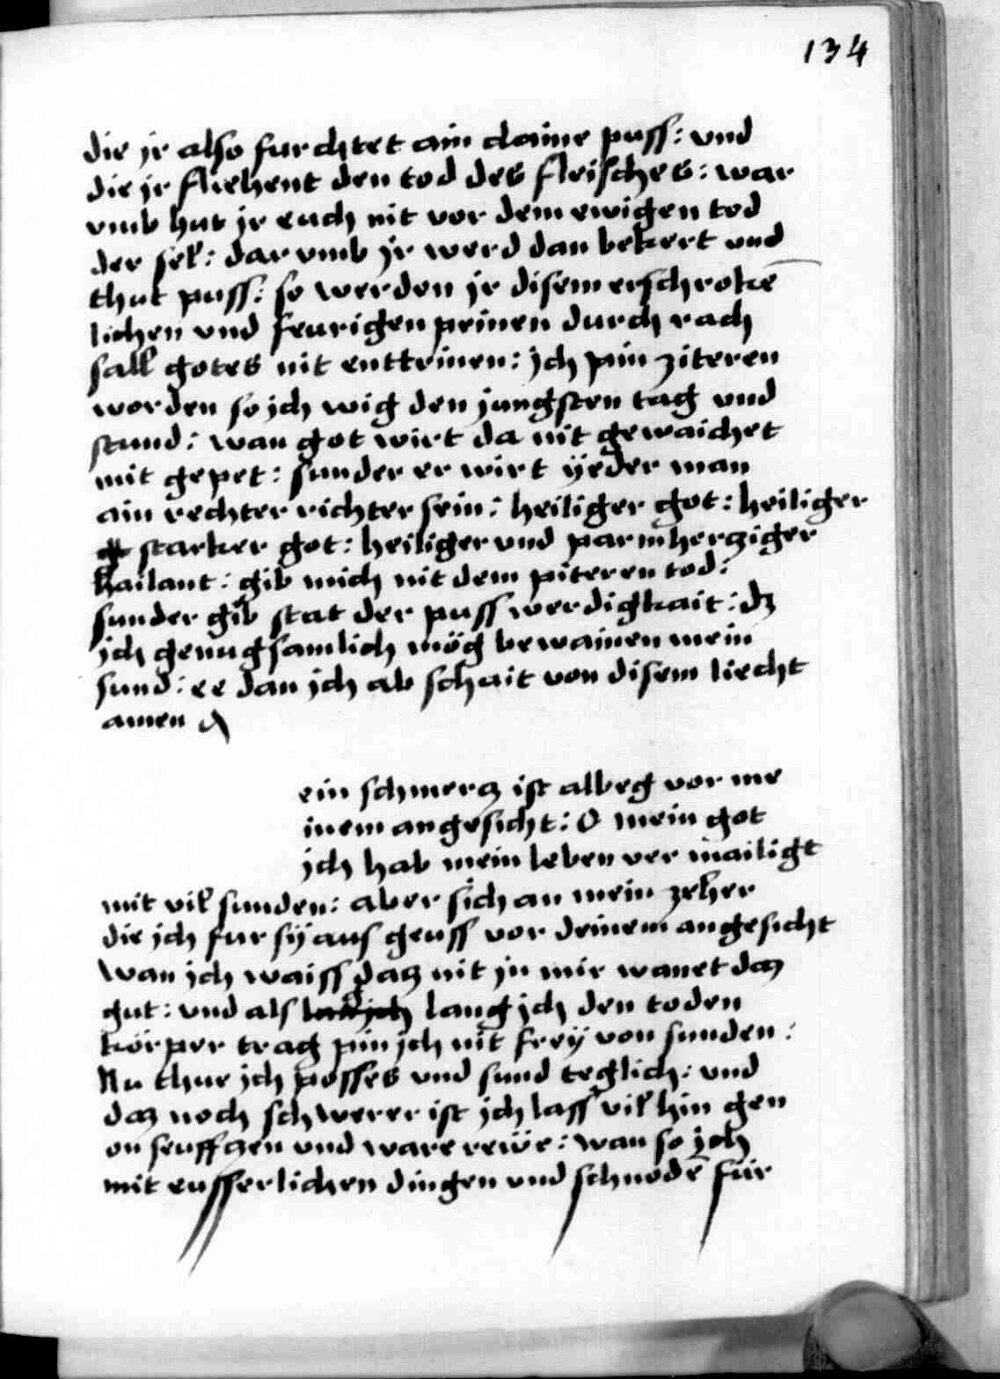 134
die jr also furchtet ain claine puss: und
die jr fliehent den tod des fleisches: war
vmb hut jr euch nit vor dem ewigen tod
der sel: dar vmb jr werd dan bekert und
thut puss: so werden jr disem erschrokē
lichen vnd feurigen peinen durch rach
sall gotes nit enttrinen: jch pin ziteren
worden so jch wig den jungsten tag vnd
stund: wan got wirt da nit gewaichet
mit gepet: sunder er wirt ÿeder man
ain rechter richter sein: heiliger got: heiliger
starker got: heiliger vnd parmherziger
hailant: gib mich nit dem piteren tod:
sunder gib stat der puss werdigkait: dz
jch genugsamlich mög bewainen mein
sund: ee dan jch ab schait von disem liecht
amen
ein schmerz ist albeg vor me
inem angesicht: O mein got
jch hab mein leben ver mailigt
mit vil sunden: aber sich an mein zeher
die jch fur sÿ aus geuss vor deinem angesicht
wan jch waiss daz nit jn mir wanet daz
gut: vnd als lang jch den toden
körper trag pin jch nit freÿ von sunden:
Nu thue jch posses vnd sund teglich: vnd
daz noch schwerer ist jch lass vil hin gen
on seufftzen vnd ware rewe: wan so jch
mit eusserlichen dingen vnd schnodē für